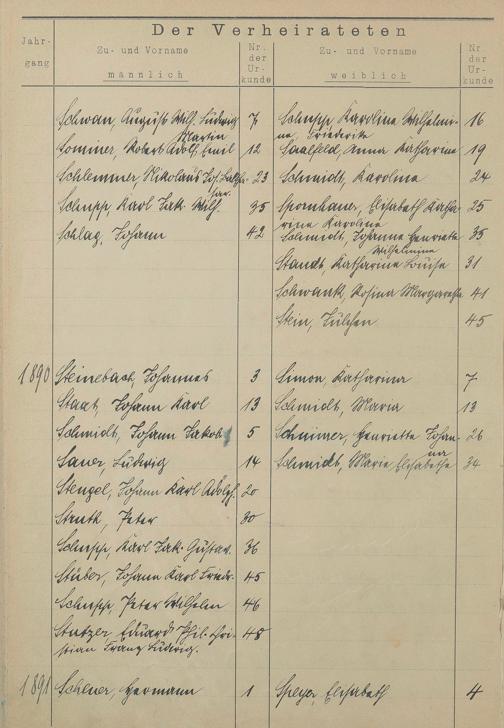 Der Verheirateten
Jahr-
gang
Zu- und Vorname
männlich
Nr.
der
Ur-
kunde
Zu- und Vorname
weiblich
Nr.
der
Ur-
kunde
Schwan, August Wilh. Ludwig 7 Schupp, Karoline Wilhelmi- 16
Martin ne, Friederike
Sommer, Robert Adolf Emil 12 Saalfeld, Anna Katharine 19
Schlemmer, Nikolaus 23 Schmidt, Karoline 24
Schupp, Karl Jak. Wilh. 35 Spornhauer, Elisabeth Katha- 25
rine Karoline
Schlag, Johann 42 Schmidt, Johanne Henriette 35
Wilhelmine
Staudt, Katharine Louise 31
Schwank, Rosina Margarethe 41
Stein, Julchen 45
1890 Steinebach, Johannes 3 Simon, Katharina 7
Staat, Johann Karl 13 Schmidt, Maria 13
Schmidt, Johann Jakob 5 Henriette Johan- 26
na
Sauer, Ludwig 14 Schmidt, Marie Elisabethe 34
Stengel, Johann Karl Adolph. 20
Struth, Peter 30
Schupp, Karl Jak. Gustav. 36
Stüber, Johann Karl Friedr. 45
Schupp, Peter Wilhelm 46
Stutzer, Eduard Phil. Chri- 48
stian Franz Ludwig.
1891 Scheuer, Hermann 1 Speyer, Elisabeth 4